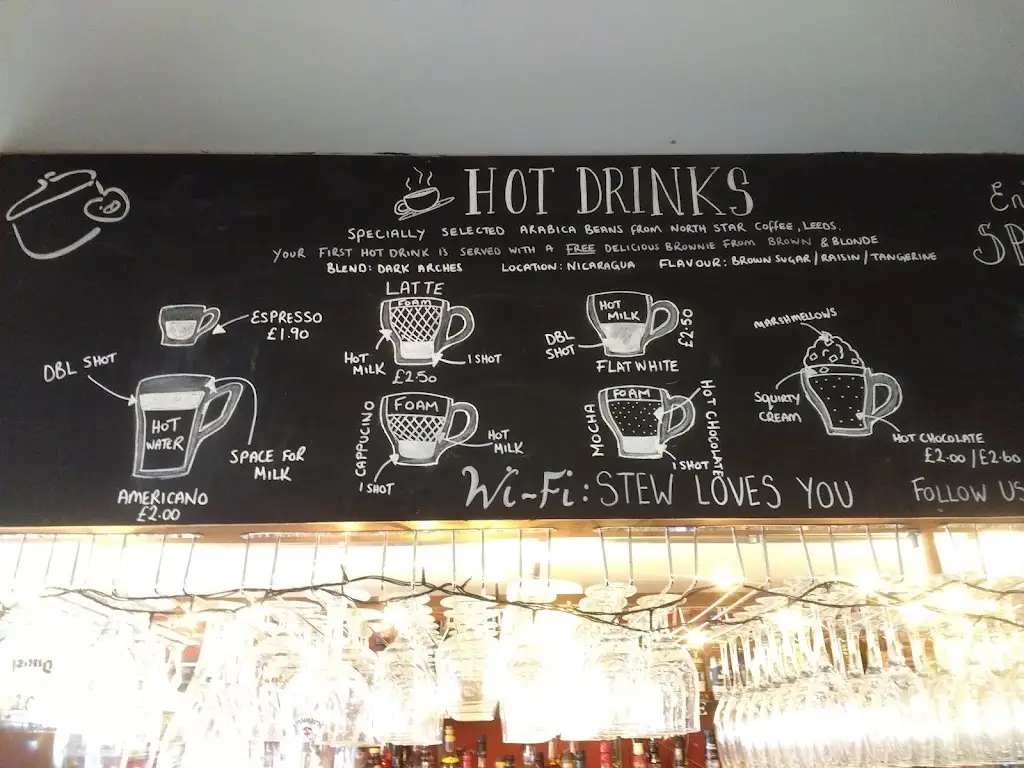 HOT DRINKS
SPECIALLY SELECTED ARABICA BEANS FROM NORTH STAR COFFEE, LEEDS.
YOUR FIRST HOT DRINK IS SERVED WITH A FREE DELICIOUS BROWNIE FROM BROWN & BLONDE
BLEND: DARK ARCHES LOCATION: NICARAGUA FLAVOUR: BROWN SUGAR / RAISIN / TANGERINE
ESPRESSO
£1.90
DBL SHOT
HOT
WATER
SPACE FOR
MILK
AMERICANO
£2.00
LATTE
FOAM
HOT
MILK
1 SHOT
£2.50
CAPPUCINO
FOAM
HOT
MILK
1 SHOT
HOT
MILK
DBL
SHOT
£2.50
FLAT WHITE
MOCHA
FOAM
HOT CHOCOLATE
1 SHOT
MARSHMELLOWS
SQUIRTY
CREAM
HOT CHOCOLATE
£2.00 / £2.60
Wi-Fi: STEW LOVES YOU
FOLLOW US